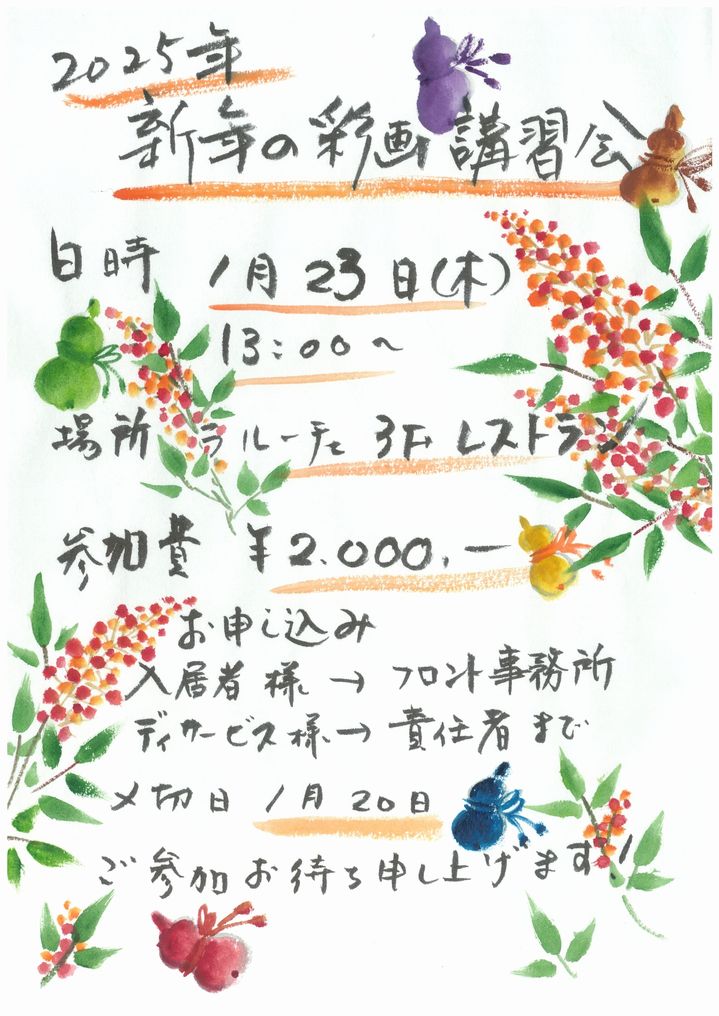 2025年
新年の彩画講習会
日時 1月23日(木)
13:00〜
場所 ラルーチェ 3F レストラン
参加費 ¥2.000.ー
お申し込み
入居者様→フロント事務所
デイサービス様→責任者まで
〆切日 1月20日
ご参加お待ち申し上げます!